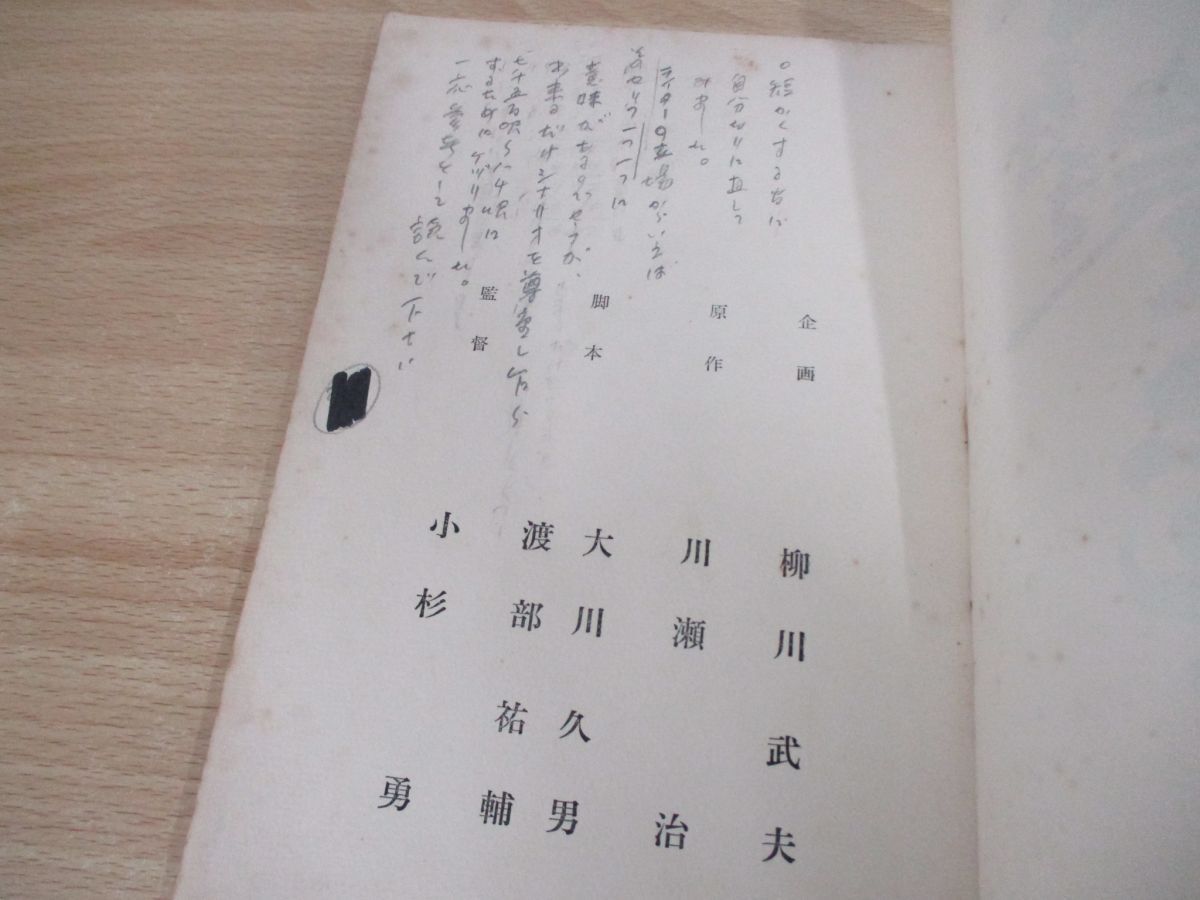 短かくする為に
自分なりに直して
みました。
ライターの立場からいえば
セリフ一つ一つに
意味があるのでせうが、
出来るだけシナリオを尊重し乍ら
七千五百呎
するためにケヅリました。
一応参考として読んで下さい
企画 柳川武夫
原作 川瀬治
脚本 大川久男
渡部祐輔
監督 小杉勇